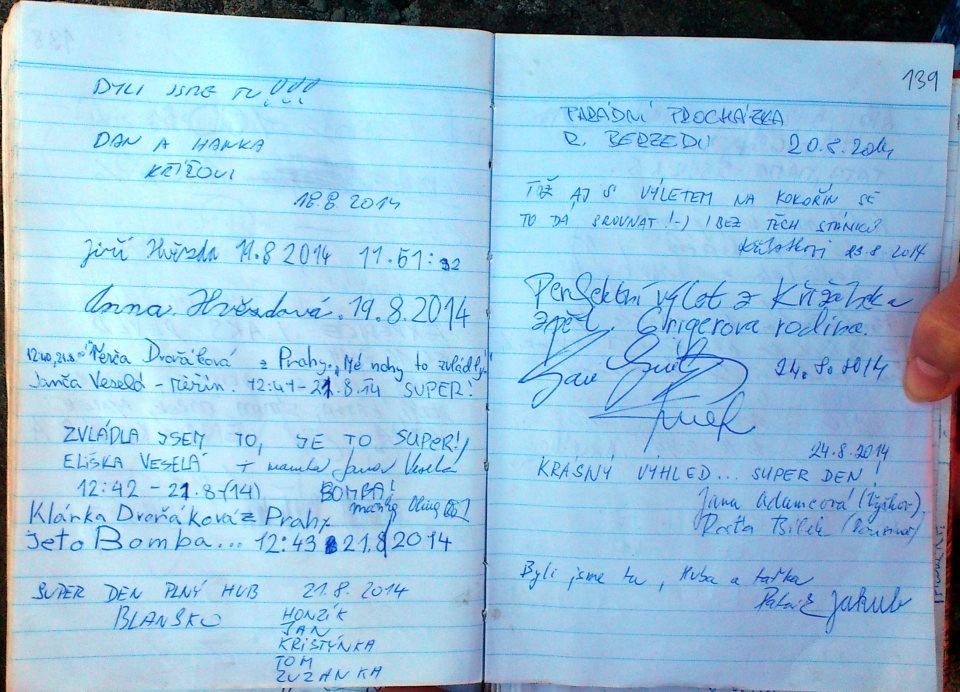 BYLI JSME TU!!!
DAN A HANKA
KŘÍŽOVI
18.8 2014
Jiří Hvězda 11.8 2014 11:51:32
Anna Hvězdová. 19.8.2014
12:40, 21.8 Terča Dvořáková z Prahy. Mé nohy to zvládly!
Janča Veselá - Měřín. 12:41-21.8.14 SUPER!
ZVLÁDLA JSEM TO, JE TO SUPER!
ELIŠKA VESELÁ + mamka Jana Veselá
12:42 - 21.8-(14) BOMBA!
Klárka Dvořáková z Prahy
Jeto Bomba... 12:43 21.8 2014
SUPER DEN PLNÝ HUB 21.8.2014
BLANSKO HONZÍK
JAN
KRISTÝNKA
TOM
ZUZANKA
139
PARÁDNÍ PROCHÁZKA
R. BERZEDU 20.8.2014
TIŽ AJ S VÝLETEM NA KOKOŘÍN SE
TO DÁ SROVNAT!:-) I BEZ TĚCH STÁNKŮ
23.8 2014
Perfektní výlet z Křižánek a
zpět. Grigerova rodina.
24.8.2014
24.8.2014
KRÁSNÝ VÝHLED... SUPER DEN!
Jana Adamcová (Vyškov),
Raťa Bílek
Byli jsme tu, Kuba a taťka
Jakub